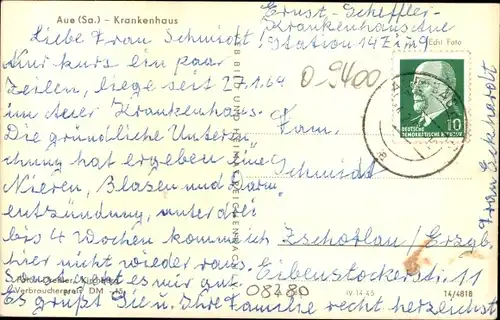 Aue (Sa.) - Krankenhaus
Ernst-Scheffler-
Krankenhaus Aue
Station 14 Zim 9
Echt Foto
Liebe Frau Schmidt!
Nur kurz ein paar
Zeilen, liege seit 27.1.64
im Auer Krankenhaus.
Die gründliche Untersu-
chung hat ergeben eine
Nieren, Blasen und Darm
entzündung, unter drei
bis 4 Wochen komm ich
hier nicht wieder raus.
Sonst geht es mir gut
Es grüßt Sie u. Ihre Familie recht herzlichst
Frau Eckhardt
0-9400
DEUTSCHE
DEMOKRATISCHE REPUBLIK
10
Fam.
Schmidt
Zschorlau / Erzgb.
Eibenstockerstr. 11
08280
Verbraucherpreis DM -,15
IV 14 45
14/4818